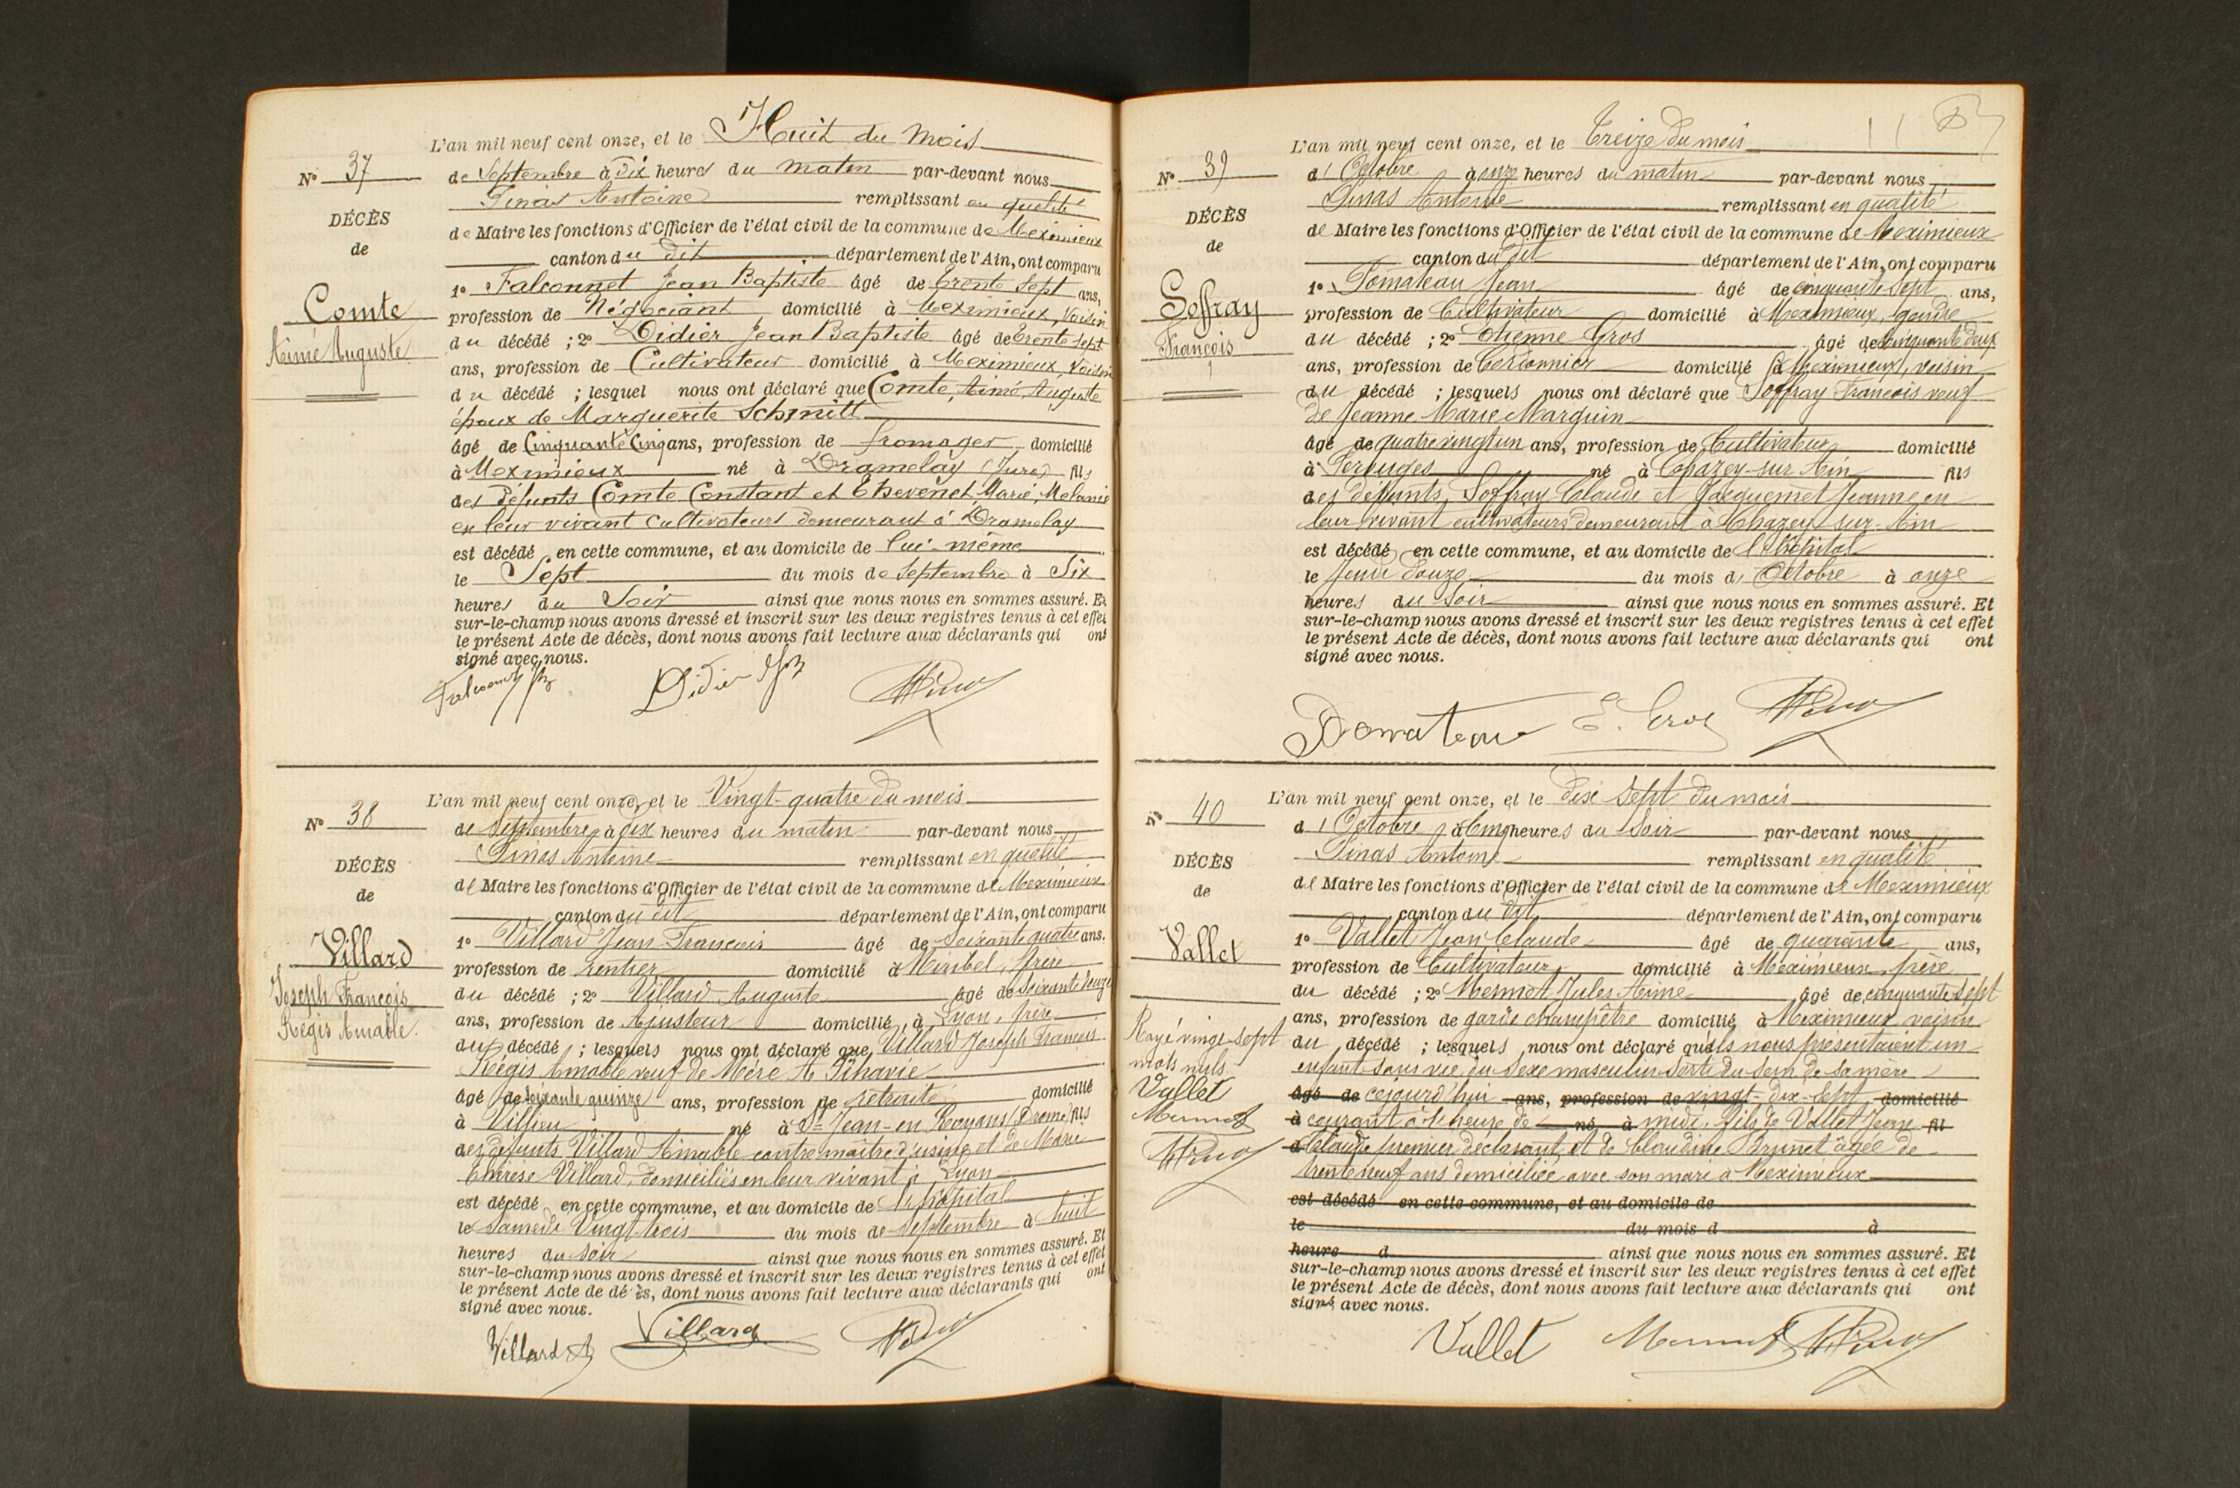 L'an mil neuf cent onze, et le Huit du mois
N° 37
de Septembre à Dix heures du matin par-devant nous
Pinas Antoine remplissant en qualité
DÉCÈS
de Maire les fonctions d'Officier de l'état civil de la commune de Meximieux
de
canton du dit département de l'Ain, ont comparu
1° Falconnet Jean Baptiste âgé de trente sept ans,
Comte
profession de Négociant domicilié à Meximieux, voisin
Aimé Auguste
du décédé ; 2° Didier Jean Baptiste âgé de trente sept
ans, profession de Cultivateur domicilié à Meximieux, voisin
du décédé ; lesquel nous ont déclaré que Comte, Aimé, Auguste
époux de Marguerite Schmitt
âgé de Cinquante Cinq ans, profession de fromager domicilié
à Meximieux né à Dramelay (Jura) fils
des défunts Comte Constant et Thevenet, Marie, Melanie
en leur vivant Cultivateurs demeurant à Dramelay
est décédé en cette commune, et au domicile de lui-même
le Sept du mois de Septembre à Six
heures du Soir ainsi que nous nous en sommes assuré. Et
sur-le-champ nous avons dressé et inscrit sur les deux registres tenus à cet effet
le présent Acte de décès, dont nous avons fait lecture aux déclarants qui ont
signé avec nous.
Didier
L'an mil neuf cent onze, et le Vingt-quatre du mois
N° 38
de Septembre à dix heures du matin par-devant nous
Pinas Antoine remplissant en qualité
DÉCÈS
de Maire les fonctions d'Officier de l'état civil de la commune de Meximieux
de
canton du dit département de l'Ain, ont comparu
1° Villard Jean François âgé de Soixante quatre ans.
Villard
profession de rentier domicilié à Miribel, frère
Joseph François
du décédé ; 2° Villard Auguste âgé de soixante
Régis Amable.
ans, profession de Ajusteur domicilié à Lyon, frère
du décédé ; lesquels nous ont déclaré que Villard Joseph François
Régis Amable veuf de
âgé de soixante quinze ans, profession de retraité domicilié
à Villieu né à St Jean-en Royans (Drome) fils
des défunts Villard Amable contremaître d'usine et de Marie
Therese Villard, domiciliés en leur vivant à Lyon
est décédé en cette commune, et au domicile de l'hôpital
le Samedi Vingt trois du mois de Septembre à huit
heures du soir ainsi que nous nous en sommes assuré. Et
sur-le-champ nous avons dressé et inscrit sur les deux registres tenus à cet effet
le présent Acte de décès, dont nous avons fait lecture aux déclarants qui ont
signé avec nous.
Villard A Villard
L'an mil neuf cent onze, et le Treize du mois
N° 39
d'Octobre à onze heures du matin par-devant nous
Pinas Antoine remplissant en qualité
DÉCÈS
de Maire les fonctions d'Officier de l'état civil de la commune de Meximieux
de
canton du dit département de l'Ain, ont comparu
1° Jean âgé de cinquante sept ans,
Soffray
profession de Cultivateur domicilié à Meximieux, gendre
François
du décédé ; 2° Etienne Gros âgé de cinquante deux
ans, profession de domicilié à Meximieux, voisin
du décédé ; lesquels nous ont déclaré que Soffray François veuf
de Jeanne Marie Marguin
âgé de quatre vingt un ans, profession de Cultivateur domicilié
à Pérouges né à Chazey-sur Ain fils
des défunts, Soffray Claude et Jacquemet Jeanne en
leur vivant cultivateurs demeurant à Chazey-sur-Ain
est décédé en cette commune, et au domicile de l'Hôpital
le Jeudi douze du mois d'Octobre à onze
heures du soir ainsi que nous nous en sommes assuré. Et
sur-le-champ nous avons dressé et inscrit sur les deux registres tenus à cet effet
le présent Acte de décès, dont nous avons fait lecture aux déclarants qui ont
signé avec nous.
E. Gros
L'an mil neuf cent onze, et le dix sept du mois
N° 40
d'Octobre à Cinq heures du Soir par-devant nous
Pinas Antoine remplissant en qualité
DÉCÈS
de Maire les fonctions d'Officier de l'état civil de la commune de Meximieux
de
canton du dit département de l'Ain, ont comparu
1° Vallet Jean Claude âgé de quarante ans,
Vallet
profession de Cultivateur domicilié à Meximieux, père
du décédé ; 2° Mermet Jules Aimé âgé de cinquante sept
ans, profession de garde champêtre domicilié à Meximieux voisin
Rayé vingt-sept
du décédé ; lesquels nous ont déclaré qu'ils nous présentaient un
mots nuls.
enfant sans vie du sexe masculin sorti du sein de sa mère
Vallet
âgé de cejourd'hui ans, profession de vingt-dix-sept domicilié
Mermet
à courant à l'heure de né à midi, fils de Vallet Jean fil
d Claude premier déclarant et de Claudine Brunet âgée de
trente neuf ans domiciliée avec son mari à Meximieux
est décédé en cette commune, et au domicile de
le du mois d à
heure d ainsi que nous nous en sommes assuré. Et
sur-le-champ nous avons dressé et inscrit sur les deux registres tenus à cet effet
le présent Acte de décès, dont nous avons fait lecture aux déclarants qui ont
signé avec nous.
Vallet Mermet